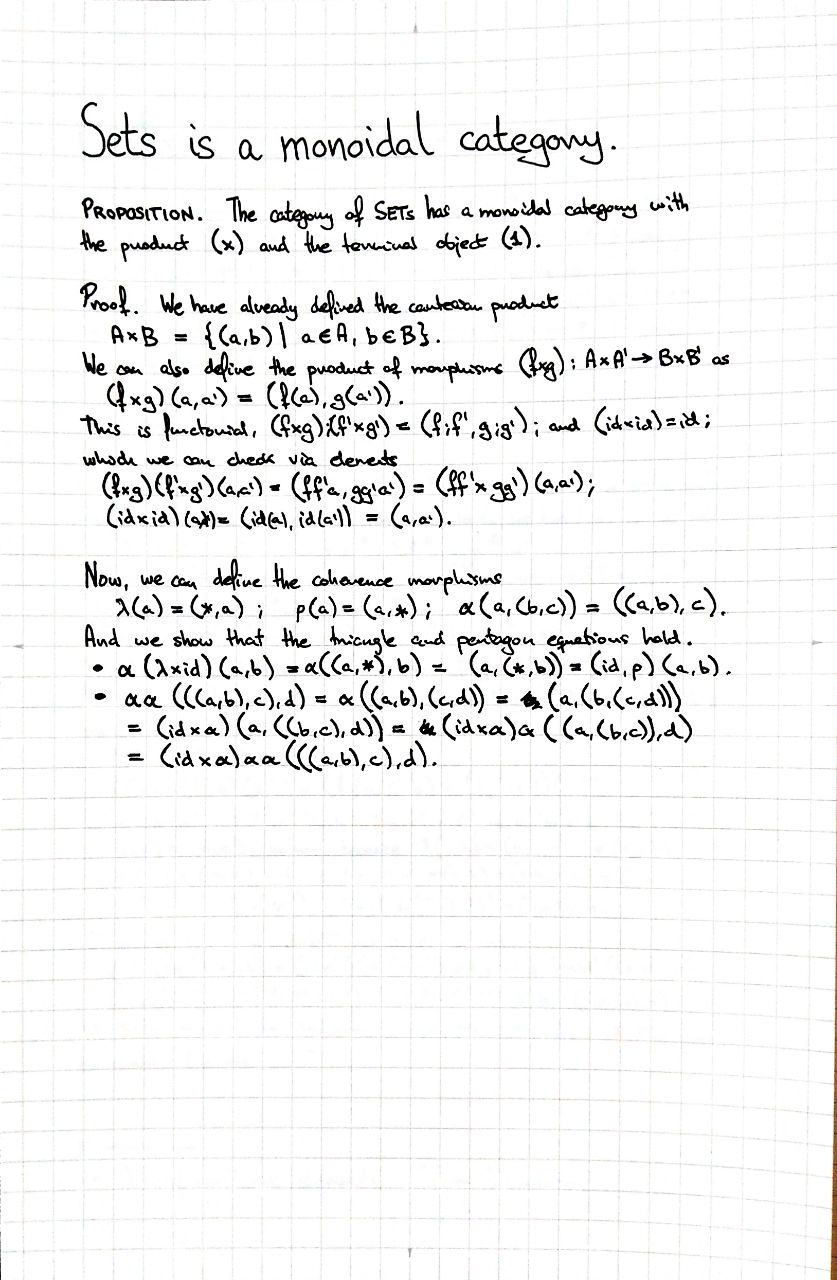 Sets is a monoidal category.
PROPOSITION. The category of SETs has a monoidal category with
the product (×) and the terminal object (1).
Proof. We have already defined the cartesian product
A×B = {(a,b) | a∈A, b∈B}.
We can also define the product of morphisms (f×g): A×A' → B×B' as
(f×g)(a,a') = (f(a), g(a')).
This is functorial, (f×g);(f'×g') = (f;f', g;g'); and (id×id)=id;
which we can check via elements
(f×g)(f'×g')(a,a') = (ff'a, gg'a') = (ff'× gg')(a,a');
(id×id)(a,a')= (id(a), id(a')) = (a,a').
Now, we can define the coherence morphisms
λ(a) = (*,a) ; ρ(a) = (a,*) ; α(a,(b,c)) = ((a,b),c).
And we show that the triangle and pentagon equations hold.
• α(λ×id)(a,b) = α((a,*),b) = (a,(*,b)) = (id,ρ)(a,b).
• αα(((a,b),c),d) = α((a,b),(c,d)) = (a,(b,(c,d)))
= (id×α)(a,((b,c),d)) = (id×α)α((a,(b,c)),d)
= (id×α)αα(((a,b),c),d).